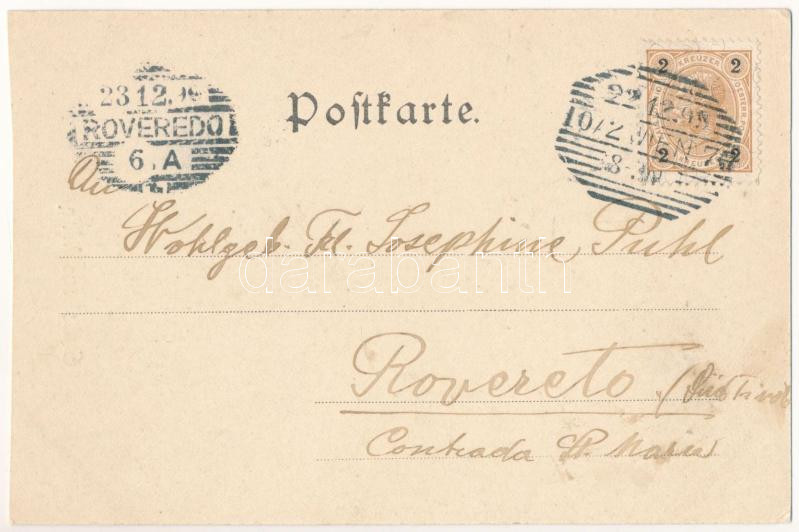 23 12.
ROVEREDO
6. A
Poſtkarte.
2 KREUZER 2
2 2
22 12.
10/2 WIEN
An
Wohlgeb. Frl. Josephine Puhl
darabanth
Rovereto (Südtirol
Contrada St. Maria